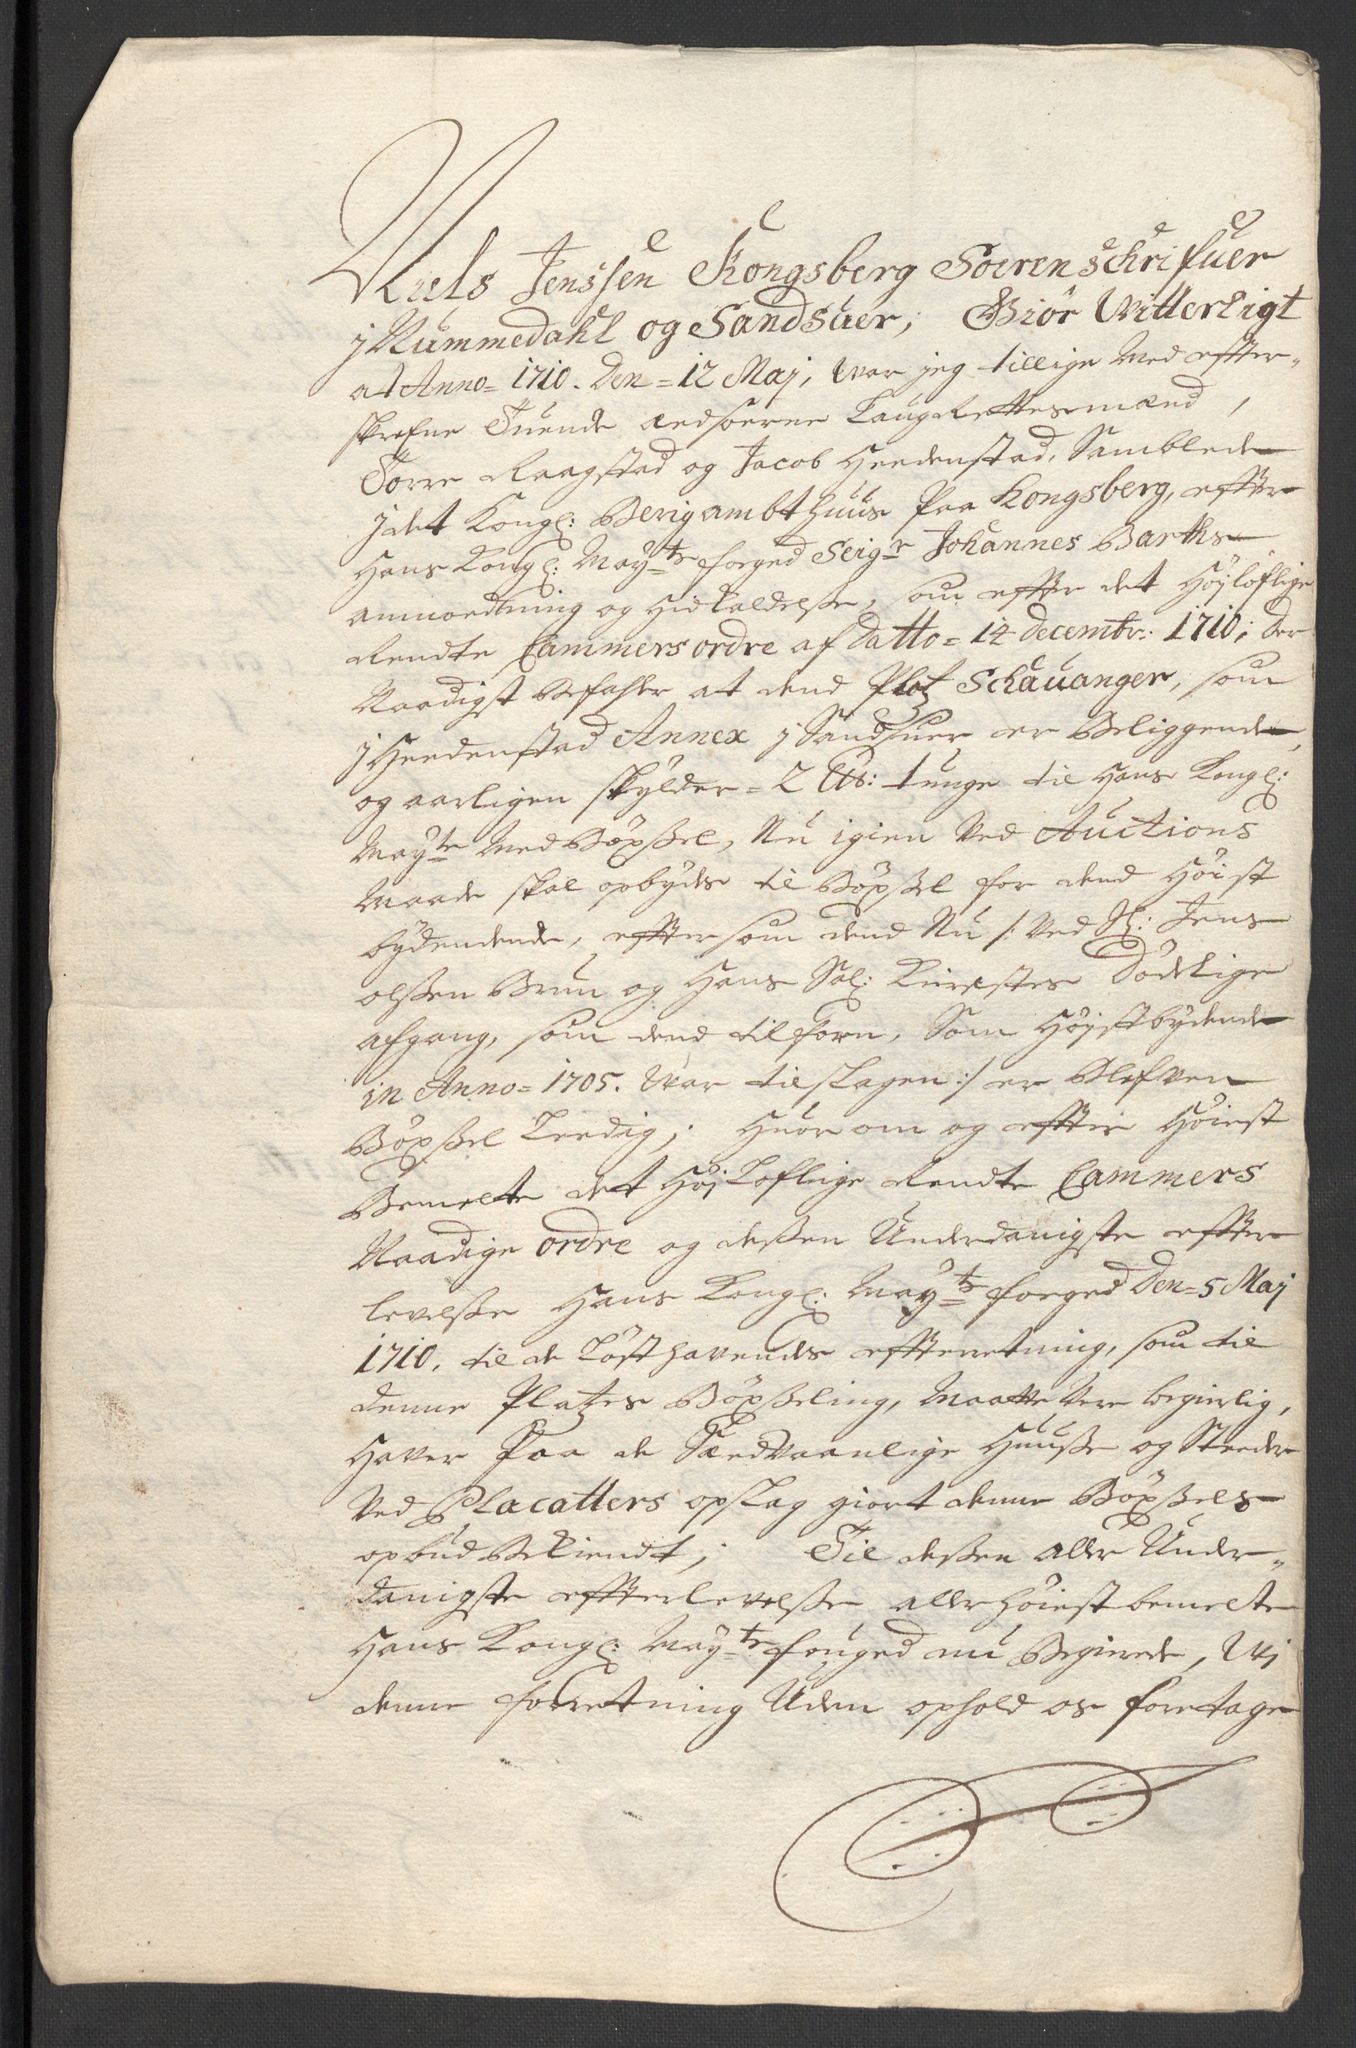 Niels Jenssen Kongsberg Soerenschrifuer
j Nummedahl og Sandsuer, Giör Witterligt
at Anno= 1710. Den= 12 Maj, war jeg tillige Med effter„
skrefne Tuende aedsoerne LaugRettesmænd,
Torre Raagstad og Jacob Heedenstad, Samblede
j det Kongl: Bergambthuus Paa Kongsberg, effter
Hans Kongl: Maytz foged Seigr Johannes Barths
anmoedning og hidkaldelse, som effter det Höjloflige
Rendte Cammers ordre af Datto= 14 decembr: 1710; der
Naadigst Befahler at dend Platz Schauanger, som
j Heedenstad Annex j Sandsuer er Beliggende,
og aarligen skylder= 2 Lb: tunge til Hans Kongl:
Maytz Med Böxsel, Nu igien Ved Auctions
Maade skal opbydes til Böxsel for dend Höist
bydendende, efftersom dend Nu /: Ved Sl: Jens
olssen Brun og Hans Sal: Kierestes Dödelige
afgang, som dend tilforn, Som Höjstbydende
in Anno= 1705. War tilslagen :/ er Blefven
Böxsel Leedig; Huorom og effter Höiest
Bemelte det HöjLoflige Rendte Cammers
Naadige ordre og dessen Underdanigste effter
levelse Hans Kongl: Maytz foged Den= 5 Maj
1710. til de Lösthavendes effterretning, som til
denne Platzes Böxseling, Maatte Vere begierlig,
Haver Paa de Sædvaanlige Huuse og Steeder
Ved Placatters opslag giort denne Böxsels
opbud Bekiendt; Til dessen aller Under„
danigste effterlevelse allerhöiest bemelte
Hans Kongl: Maytz fouged nu Begierede, Wi
denne forretning Uden ophold os foretage